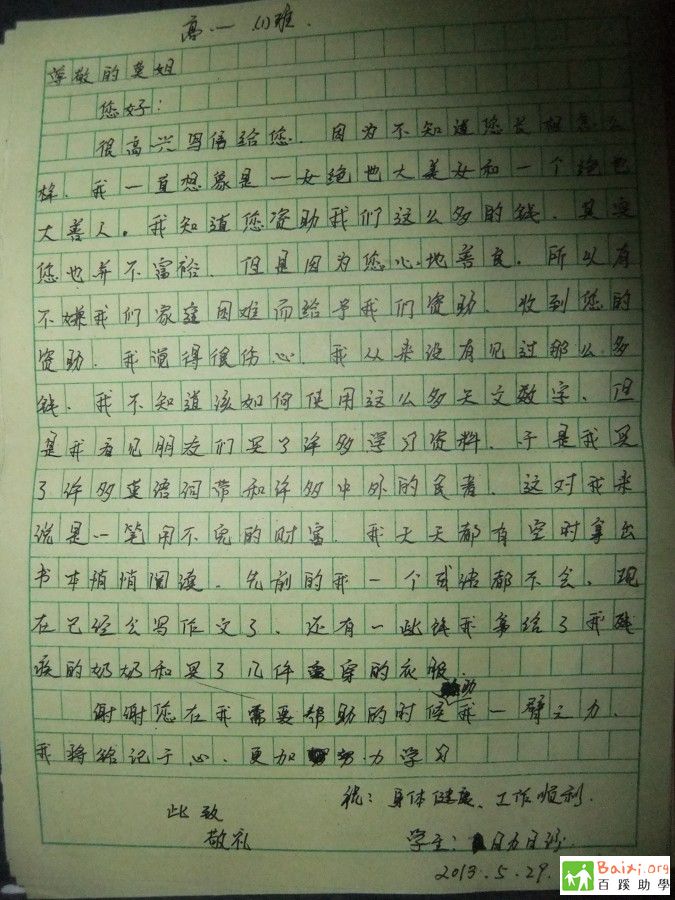 高一 (1)班.
尊敬的莫姐
您好:
很高兴写信给您. 因为不知道您长相怎么
样. 我一直想象是一女绝色大美女和一个绝色
大善人。我知道您资助我们这么多的钱. 其实
您也并不富裕. 但是因为您心地善良. 所以有
不嫌我们家庭困难而给予我们资助. 收到您的
资助. 我觉得很伤心. 我从来没有见过那么多
钱. 我不知道该如何使用这么多天文数字. 但
是我看见朋友们买了许多学习资料. 于是我买
了许多英语词带和许多中外的名著. 这对我来
说是一笔用不完的财富. 我天天都有空时拿出
书本悄悄阅读. 先前的我一个成语都不会. 现
在已经会写作文了. 还有一些钱我拿给了我残
疾的奶奶和买了几件 穿的衣服.
谢谢您在我需要帮助的时候助我一臂之力.
我将铭记于心. 更加努力学习
祝: 身体健康、工作顺利.
此致
敬礼
学生:
2013.5.29.
Baixi.org
百蹊助學